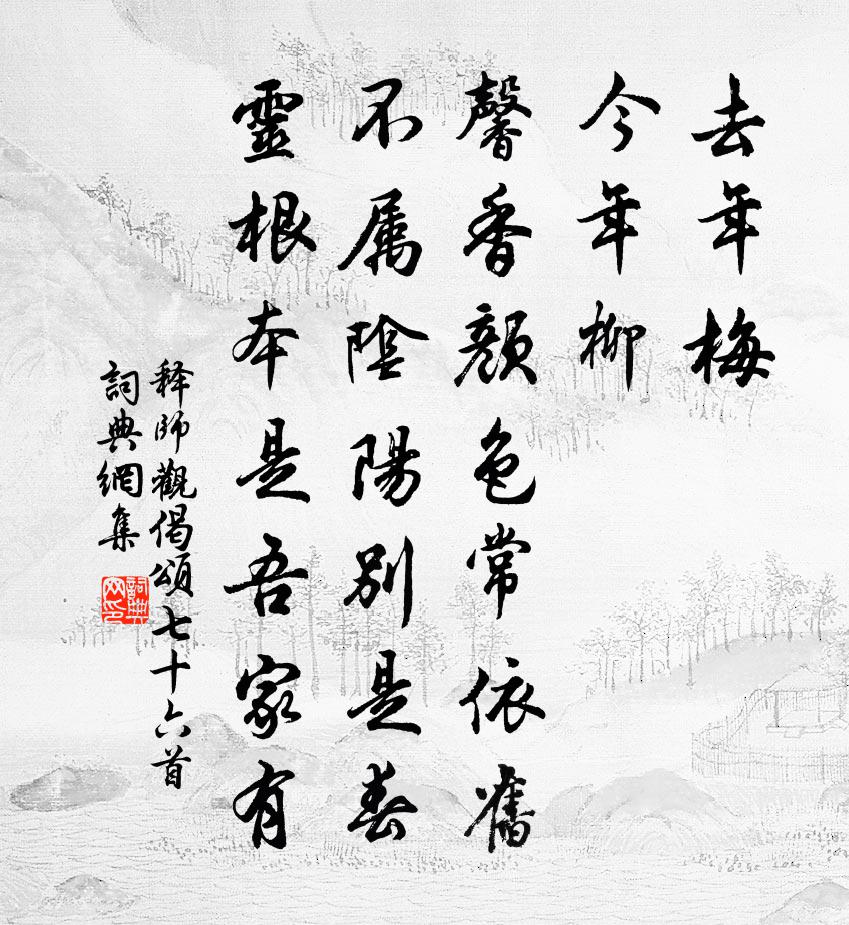 去年梅
今年柳
馨香顏色常依舊
不属陰陽別是春
靈根本是吾家有
释師觀偈頌七十六首
詞典網集
詞典網印